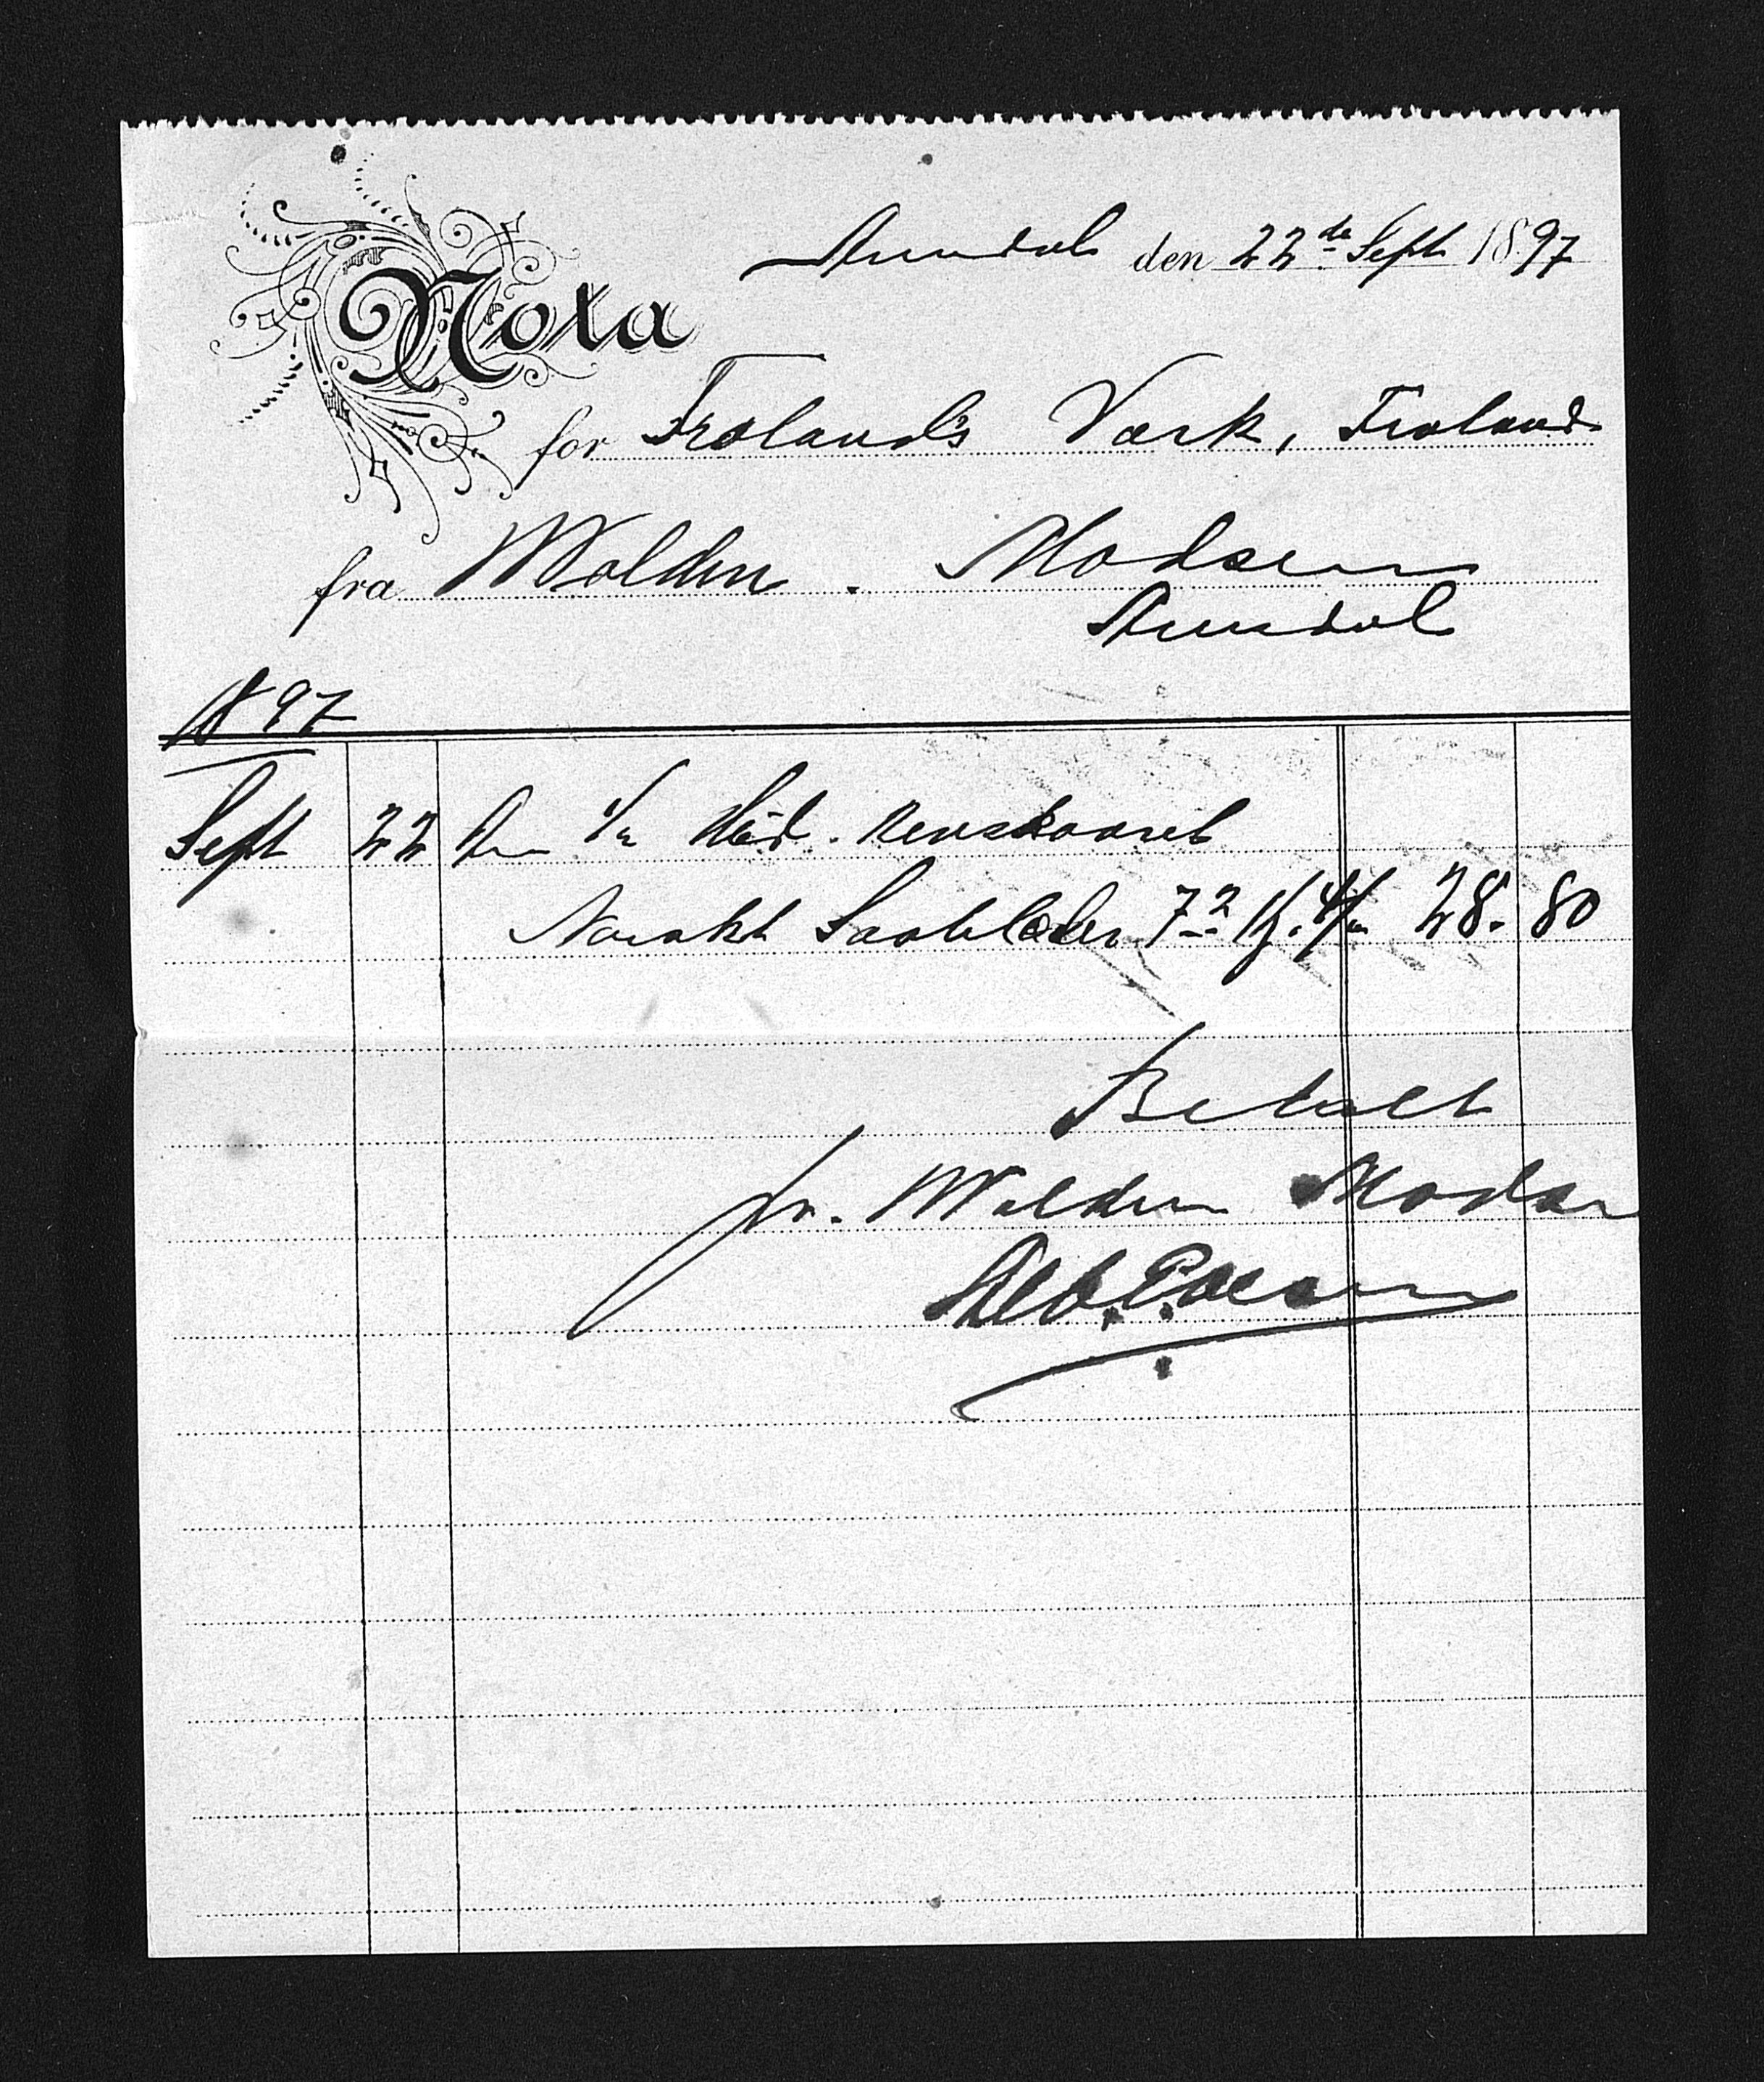 Arendal den 22de Sept 1897
Nota
for Frolands Værk, Froland
fra Molden. Madsen
Arendal
1897
Sept 22 An 1/2 Hud.
Norskt Saalelæder 7.2 K. 4/- 28. 80
Betalt
pr. Molden Madsen